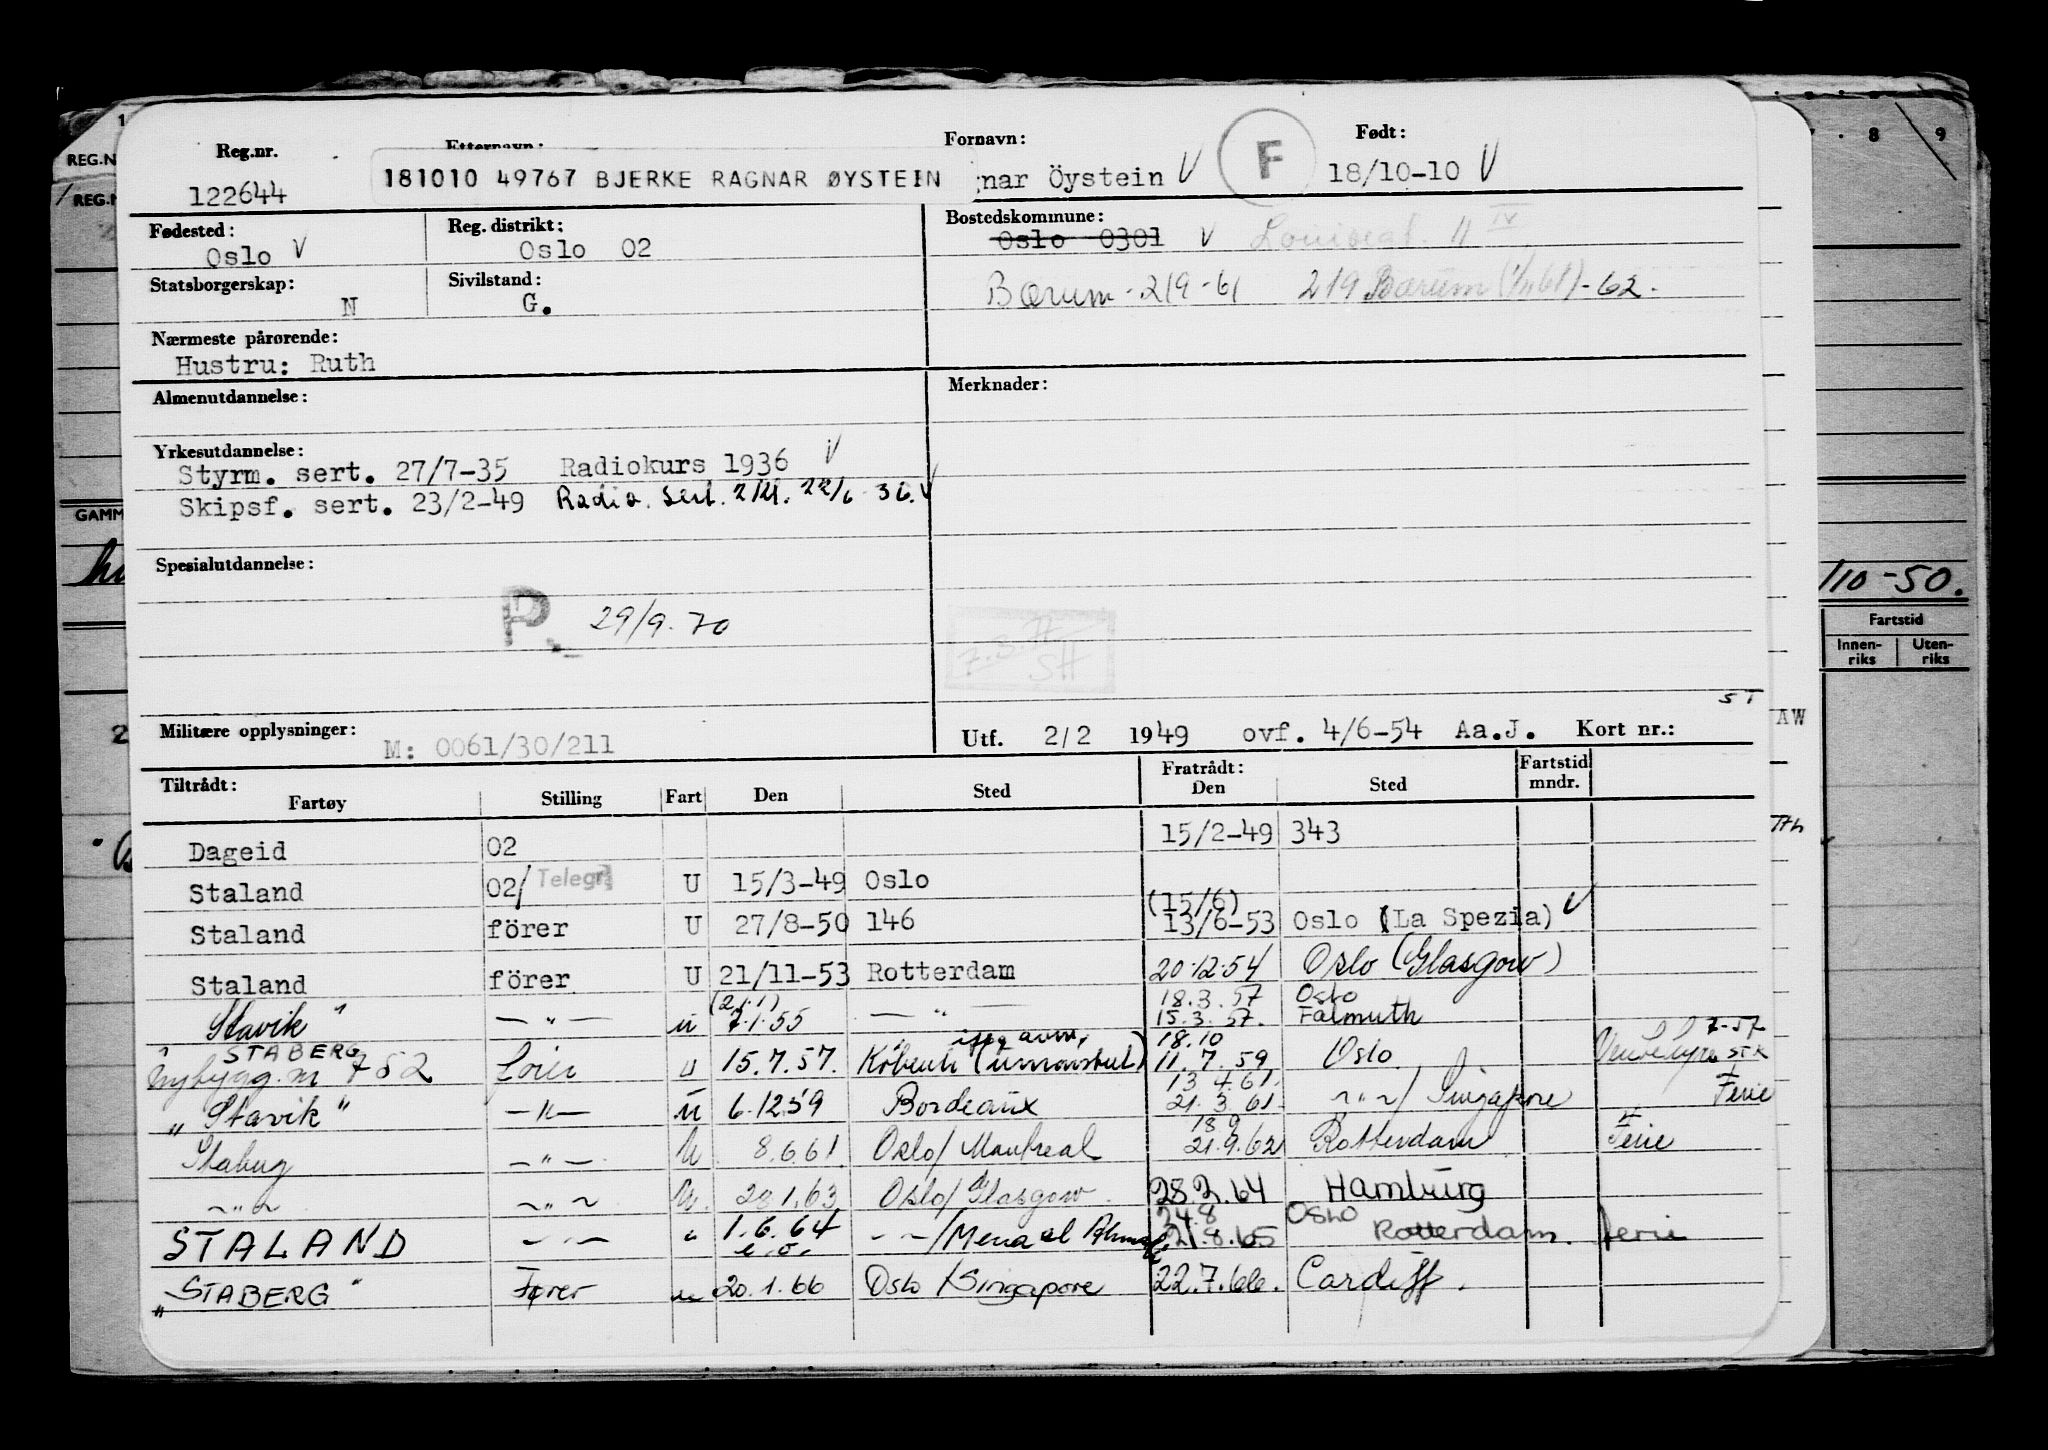 Reg.nr. Etternavn: Fornavn: Født:
122644 181010 49767 BJERKE RAGNAR ØYSTEIN nar Öystein V F 18/10-10 V
Fødested: Reg. distrikt: Bostedskommune:
Oslo V Oslo 02 Oslo 0301 V
Statsborgerskap: Sivilstand:
N G. Bærum - 219 - 61 219 Bærum -62.
Nærmeste pårørende:
Hustru: Ruth
Almenutdannelse: Merknader:
Yrkesutdannelse:
Styrm. sert. 27/7-35 Radiokurs 1936 V
Skipsf. sert. 23/2-49 Radio. Sert. 2/kl. 22/6 36. V
Spesialutdannelse:
P. 29/9.70
Militære opplysninger: M: 0061/30/211 Utf. 2/2 1949 ovf. 4/6-54 Aa.J. Kort nr.:
Tiltrådt: Fratrådt: Fartstid
Fartøy Stilling Fart Den Sted Den Sted mndr.
Dageid 02 15/2-49 343
Staland 02/ Telegr. U 15/3-49 Oslo
(15/6)
Staland förer U 27/8-50 146 13/6-53 Oslo (La Spezia) V
Staland förer U 21/11-53 Rotterdam 20.12.54 Oslo (Glasgow)
(2.1) 18.3.57 Oslo
Stavik" — " — u 7.1.55 — " 15.3.57. Falmouth
STABERG 18.10
Nybygg. nr 752 fører u 15.7.57. 11.7.59 Oslo
13 4.61.
"Stavik" — " — u 6.12.59 Bordeaux 21.3.61. ~ " ~ / Singapore Ferie
18 9
Stabug — " — U 8.6.61. Oslo/ Montreal 21.9.62 Rotterdam Ferie
~ " ~ ~ " ~ U. 20.1.63 Oslo/ Glasgow. 28.2.64 Hamburg
24.8 Oslo
STALAND — " — " 1.6.64 — " — /Mena al Ahmadi 21.8.65 Rotterdam. ferie
"STABERG" Fører u 20.1.66 Oslo /Singapore 22.7.66. Cardiff.
REG.N
REG.N
GAMM
8 9
/10 -50.
Fartstid
Innen-riks Uten-riks
ST
AW